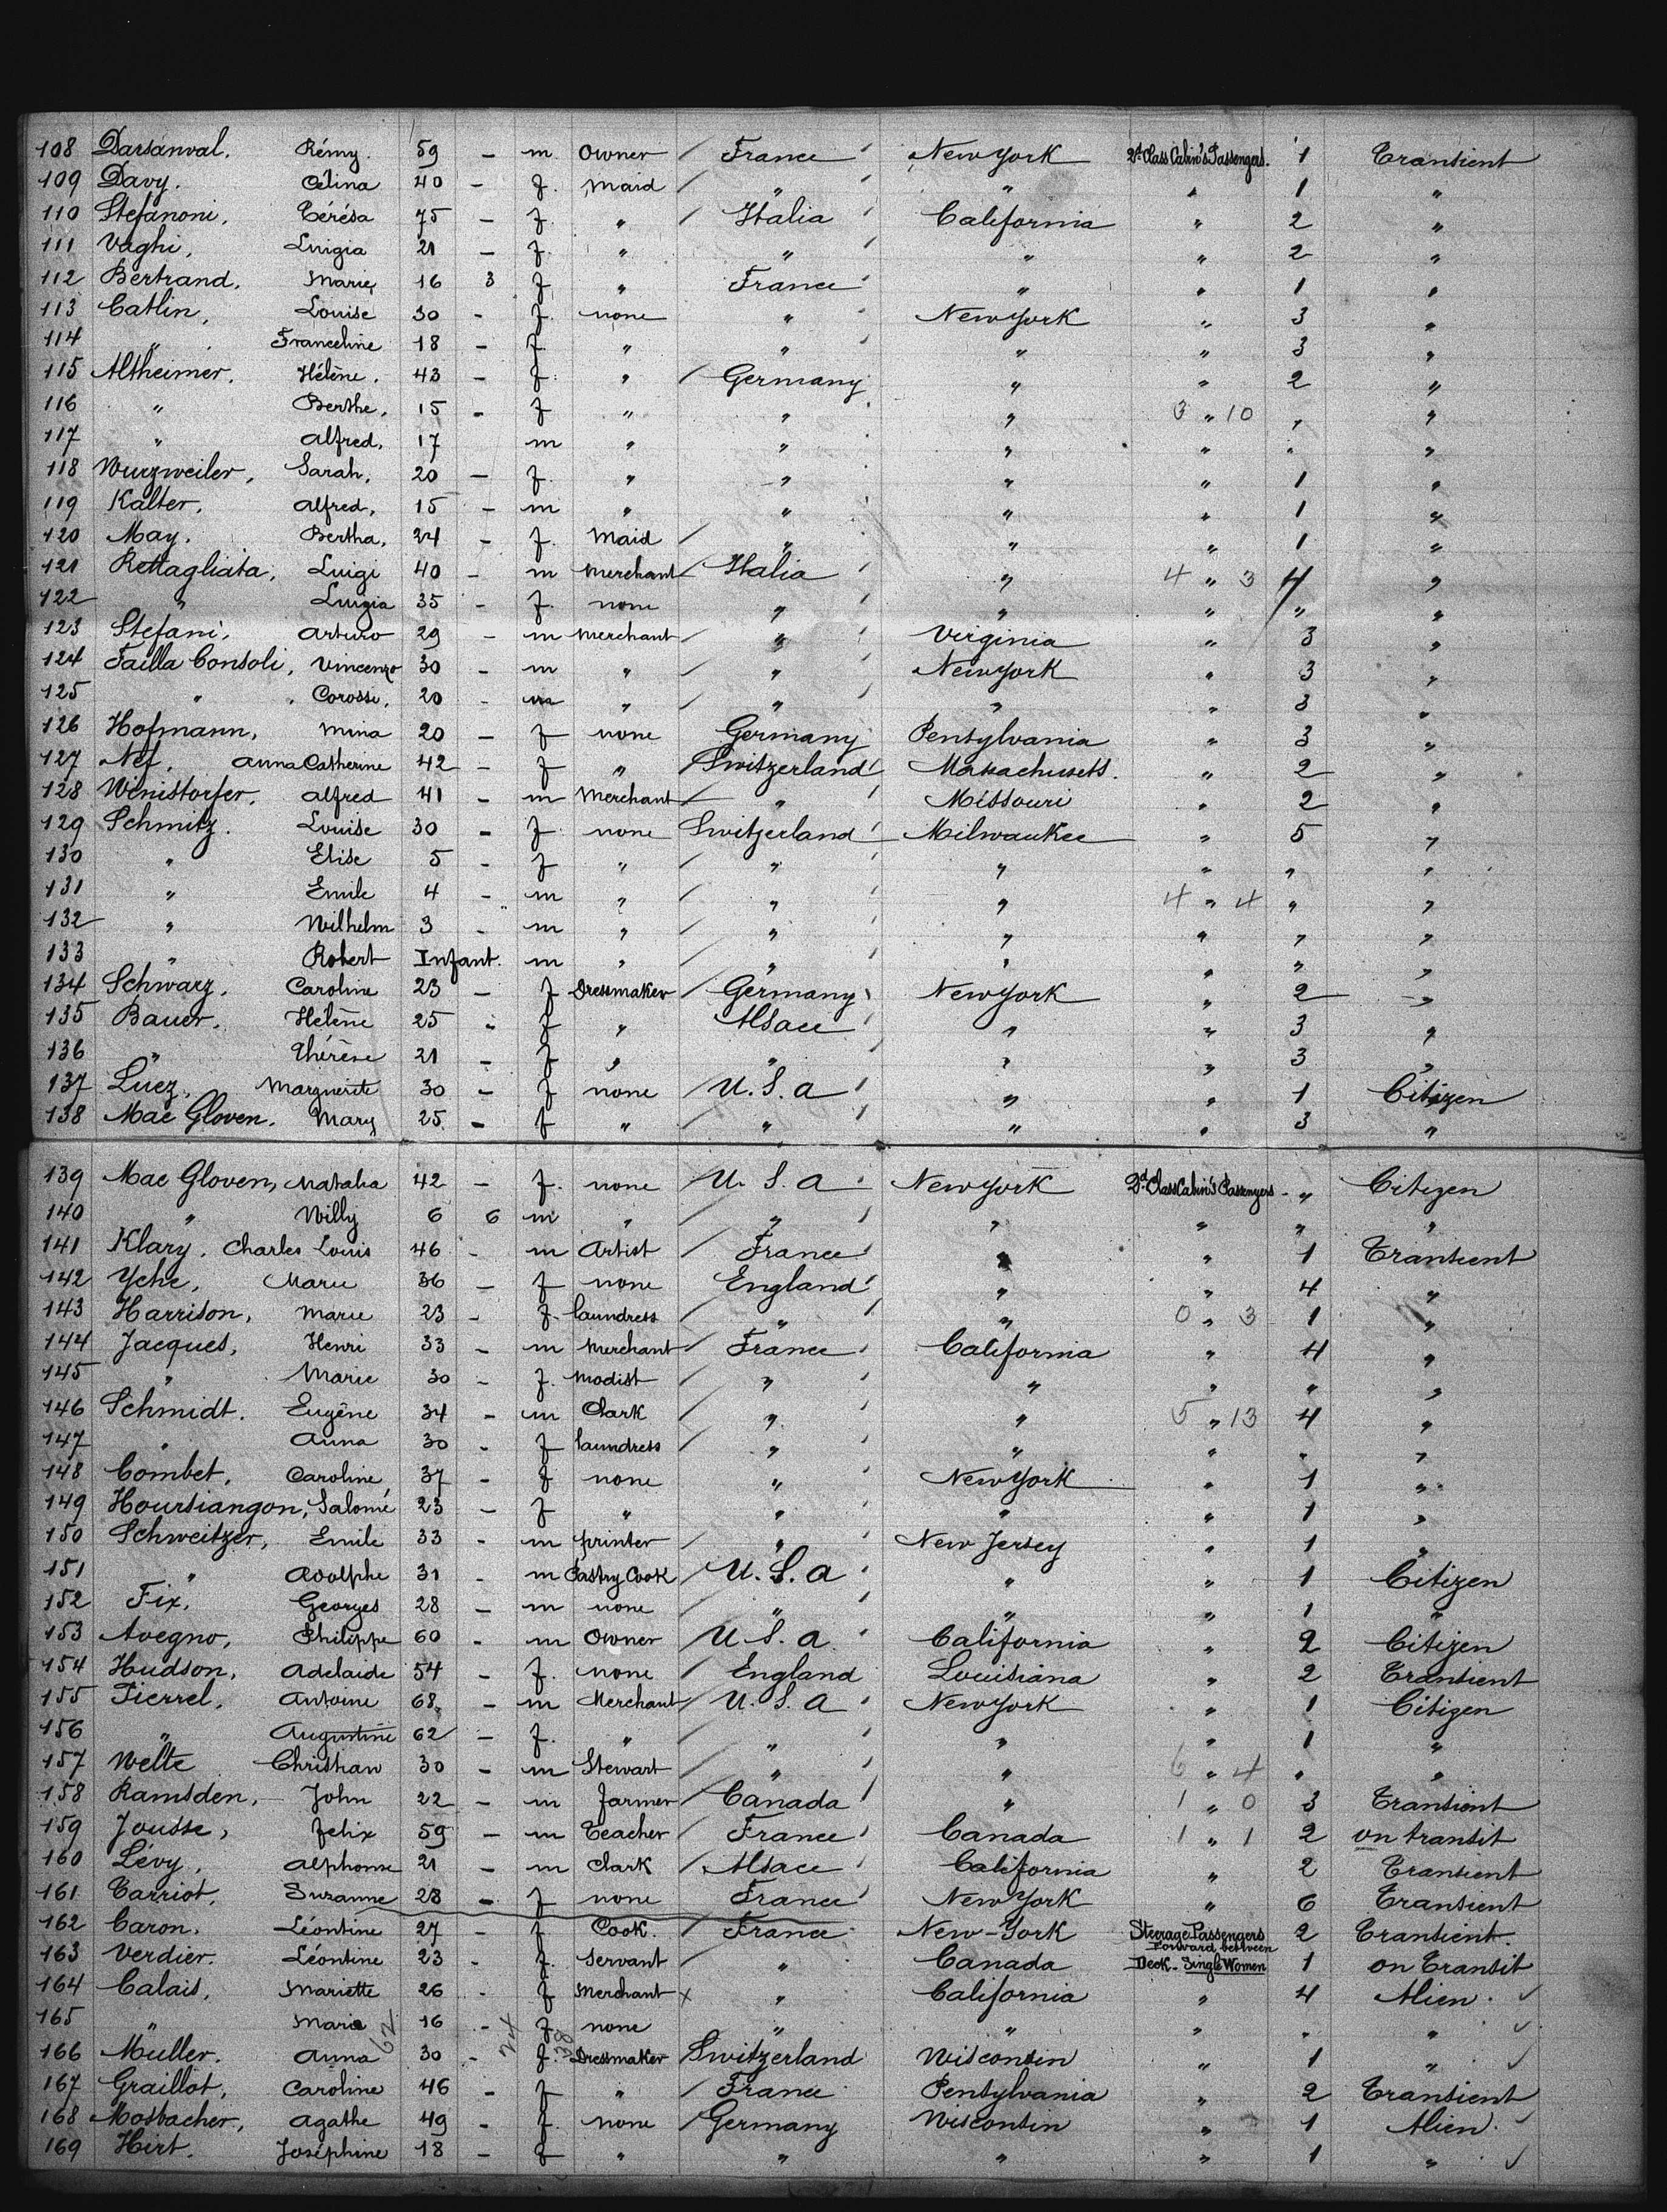 108 Darsanval. Rémy. 59 - m. Owner / France New York 2d Class Cabin's Passengers. 1 Transient
109 Davy. Célina 40 - f. Maid / " " " 1 "
110 Stefanoni, Térésa 75 - f. " / Italia California " 2 "
111 Vaghi, Luigia 21 - f. " " " " 2 "
112 Bertrand, Marie, 16 3 f " France " " 1 "
113 Catlin, Louise 30 - f. none " New York " 3 "
114 " Franceline 18 - f. " " " " 3 "
115 Altheimer, Hélène, 43 - f. " / Germany " " 2 "
116 " Berthe, 15 - f " " " 3 " 10 " "
117 " Alfred, 17 m " " " " " "
118 Wurzweiler, Sarah, 20 - f. " " " " 1 "
119 Kalter, Alfred, 15 - m " " " " 1 "
120 May. Bertha, 24 - f. Maid / " " " 1 "
121 Rettagliata, Luigi 40 - m Merchant Italia " 4 " 3 4 "
122 " Luigia 35 - f. none " " " " "
123 Stefani, Arturo 29 - m Merchant / " Virginia " 3 "
124 Failla Consoli, Vincenzo 30 - m " / " New York " 3 "
125 " Corossi, 20 - m " / " " " 3 "
126 Hofmann, Mina 20 - f none Germany Pensylvania " 3 "
127 Nef, Anna Catherine 42 - f " Switzerland Massachusets. " 2 "
128 Winistorfer, Alfred 41 - m Merchant " Missouri " 2 "
129 Schmitz. Louise 30 - f. none Switzerland Milwaukee " 5 "
130 " Elise 5 - f " / " " " " "
131 " Emile 4 - m " / " " 4 " 4 " "
132 " Wilhelm 3 - m " / " " " " "
133 " Robert Infant. m " / " " " " "
134 Schwarz, Caroline 23 - f Dressmaker / Germany New York " 2 "
135 Bauer, Hélène 25 - f " / Alsace " " 3 "
136 " Thérèse 21 - f " / " " " 3 "
137 Luez, Marguerite 30 - f none / U.S.A " " 1 Citizen
138 Mac Gloven. Mary 25. - f " / " " " 3 "
139 Mac Gloven, Natalia 42 - f. none / U.S.A. New York 2d Class Cabin's Passengers " Citizen
140 " Willy 6 6 m " / " " " " "
141 Klary, Charles Louis 46 - m Artist / France " " 1 Transient
142 Yche, Marie 36 - f none / England " " 4 "
143 Harrison, Marie 23 - f. laundress / " " 0 " 3 1 "
144 Jacques, Henri 33 - m Merchant / France California " 4 "
145 " Marie 30 - f. Modist / " " " " "
146 Schmidt. Eugène 34 - m Clark / " " 5 " 13 4 "
147 " Anna 30 - f laundress / " " " " "
148 Combet, Caroline 37 - f none " New York " 1 "
149 Hoursiangon, Salomé 23 - f " " " " 1 "
150 Schweitzer, Emile 33 - m printer " New Jersey " 1 "
151 " Adolphe 31 - m Pastry Cook / U.S.A " " 1 Citizen
152 Fix, Georges 28 - m none / " " " 1 "
153 Avegno, Philippe 60 - m Owner / U.S.A. California " 2 Citizen
154 Hudson, Adelaide 54 - f. none / England Louisiana " 2 Transient
155 Fierrel, Antoine 68 - m Merchant / U.S.A New York " 1 Citizen
156 " Augustine 62 - f. " / " " " 1 "
157 Welte Christian 30 - m Stewart / " " 6 " 4 " "
158 Ramsden, John 22 - m farmer / Canada " 1 " 0 3 Transient
159 Jousse, Felix 59 - m Teacher / France Canada 1 " 1 2 on transit
160 Lévy, Alphonse 21 - m Clark / Alsace California " 2 Transient
161 Tarriot, Suzanne 28 - f none France New York " 6 Transient
162 Caron, Léontine 27 - f Cook. / France New-York Steerage Passengers 2 Transient.
Forward between
163 Verdier. Léontine 23 - f. Servant " Canada Deck - Single Women 1 on Transit
164 Calais, Mariette 26 - f Merchant x " California " 4 Alien.
165 " Marie 16 - f. none " " " " "
62 24 38
166 Müller. Anna 30 - f. Dressmaker Switzerland Wisconsin " 1 "
167 Graillot, Caroline 46 - f " / France Pensylvania " 2 Transient
168 Mosbacher, Agathe 49 - f. none / Germany Wisconsin " 1 Alien.
169 Hirt. Joséphine 18 - f " " " " 1 "